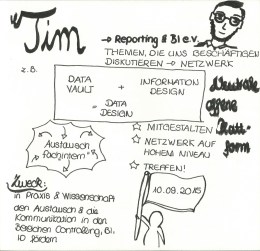 Tim
→ Reporting & BI e.V.
THEMEN, DIE UNS BESCHÄFTIGEN
DISKUTIEREN → NETZWERK
z.B.
DATA VAULT + INFORMATION DESIGN
= DATA DESIGN
Neutrale
offene
Platt-
form
Austausch
fachintern
☆ MITGESTALTEN
☆ NETZWERK AUF
HOHEM NIVEAU
☆ TREFFEN!
10.09.2015
Zweck:
in Praxis & Wissenschaft
den Austausch & die
Kommunikation in den
Bereichen Controlling, BI,
IO fördern